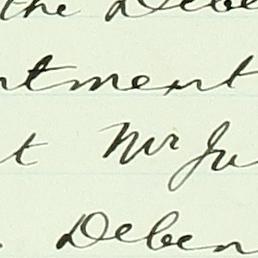 the Debe
ntment
t Mr Ju
Deben